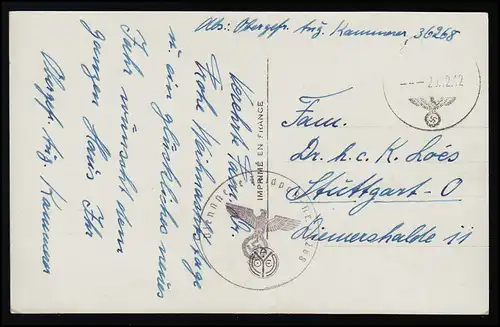 Abs.: Obergefr. Aug. Kammerer, 36268
Verehrte Fam. Dr.
Frohe Weihnachtstage
u. ein glückliches neues
Jahr wünscht dem
ganzen Haus Ihr
Obergefr. Aug. Kammerer
IMPRIMÉ EN FRANCE
Fam.
Dr. h. c. K. Loës
Stuttgart-O
Diemershalde 11